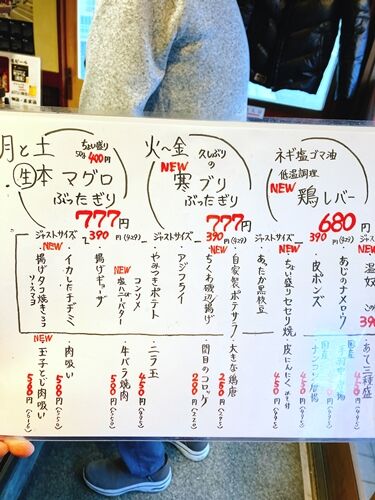 月と土
ちょい盛り
50g 400円
生本マグロ
ぶったぎり
777円
火〜金
NEW
久しぶりの
寒ブリ
ぶったぎり
777円
ネギ塩ゴマ油
低温調理
NEW
鶏レバー
680円
ジャストサイズ
390円(429)
ジャストサイズ
390円(429)
ジャストサイズ
390円(429)
NEW
・あじのナメロウ
・皮ポンズ
NEW
・ちょい盛りセセリ焼
・あたか黒枝豆
・自家製ポテサラ
NEW
・ちくわ磯辺揚げ
・アジフライ
・やみつきポテト
コンソメ
NEW
塩ハニーバター
・揚げギョーザ
・イカしたチヂミ
NEW
・揚げタコ焼きネコ
・あて三種盛
450円
450円
・皮にんにく
450円
・大きな鶏唐
250円
・関目のコロッケ
200円
・ニラ玉
450円
・牛バラ焼肉
580円
・肉吸い
500円
NEW
・玉子とじ肉吸い
580円